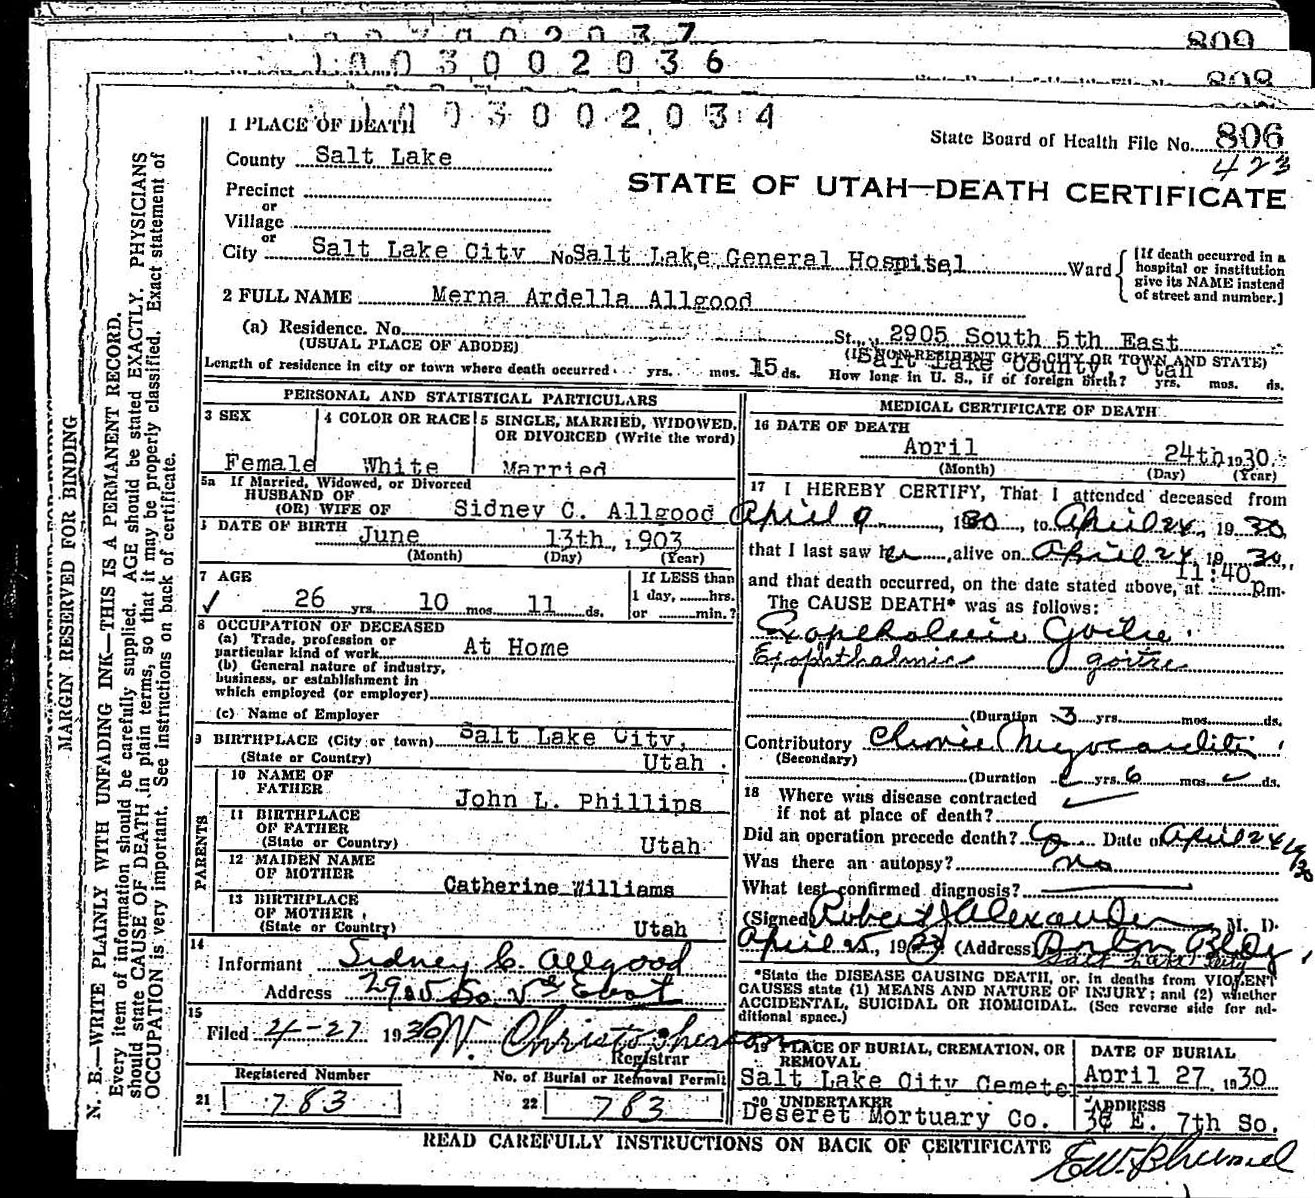 1003002037
809
1003002036
808
1003002034
State Board of Health File No. 806
423
1 PLACE OF DEATH
County Salt Lake
STATE OF UTAH—DEATH CERTIFICATE
Precinct
or
Village
or
City Salt Lake City No Salt Lake General Hospital Ward
[If death occurred in a hospital or institution give its NAME instead of street and number.]
2 FULL NAME Merna Ardella Allgood
(a) Residence. No. St., 2905 South 5th East
(USUAL PLACE OF ABODE)
(IF NON-RESIDENT GIVE CITY OR TOWN AND STATE)
Salt Lake County, Utah
Length of residence in city or town where death occurred yrs. mos. 15 ds. How long in U. S., if of foreign birth? yrs. mos. ds.
PERSONAL AND STATISTICAL PARTICULARS
3 SEX
Female
4 COLOR OR RACE
White
5 SINGLE, MARRIED, WIDOWED, OR DIVORCED (Write the word)
Married
5a If Married, Widowed, or Divorced
HUSBAND OF
(OR) WIFE OF Sidney C. Allgood
DATE OF BIRTH June 13th, 1903
(Month) (Day) (Year)
7 AGE
✓ 26 yrs. 10 mos. 11 ds.
If LESS than
1 day, hrs.
or min.?
8 OCCUPATION OF DECEASED
(a) Trade, profession or
particular kind of work At Home
(b) General nature of industry,
business, or establishment in
which employed (or employer)
(c) Name of Employer
9 BIRTHPLACE (City or town) Salt Lake City,
(State or Country) Utah
PARENTS
10 NAME OF
FATHER John L. Phillips
11 BIRTHPLACE
OF FATHER
(State or Country) Utah
12 MAIDEN NAME
OF MOTHER Catherine Williams
13 BIRTHPLACE
OF MOTHER
(State or Country) Utah
14
Informant Sidney C. Allgood
Address 2905 So. 5th East
15
Filed 4-27 1930 W. Christopherson
Registrar
Registered Number
21 783
No. of Burial or Removal Permit
22 783
MEDICAL CERTIFICATE OF DEATH
16 DATE OF DEATH
April 24th 1930.
(Month) (Day) (Year)
17 I HEREBY CERTIFY, That I attended deceased from
April 9, 1930, to April 24, 1930,
that I last saw her alive on April 24, 1930,
11:40
and that death occurred, on the date stated above, at pm.
The CAUSE DEATH* was as follows:
Exopthalmic Goitre.
Exophthalmic goitre
(Duration 3 yrs. mos. ds.
Contributory Chronic Myocarditis
(Secondary)
(Duration yrs. 6 mos. ds.
18 Where was disease contracted
if not at place of death?
Did an operation precede death? Date of April 24 1930
Was there an autopsy? no
What test confirmed diagnosis?
(Signed) Robert J Alexander M. D.
April 25, 1930 (Address) Boston Bldg,
Salt Lake City
*State the DISEASE CAUSING DEATH, or, in deaths from VIOLENT
CAUSES state (1) MEANS AND NATURE OF INJURY; and (2) whether
ACCIDENTAL, SUICIDAL OR HOMICIDAL. (See reverse side for ad-
ditional space.)
19 PLACE OF BURIAL, CREMATION, OR
REMOVAL
Salt Lake City Cemete
DATE OF BURIAL
April 27, 1930
20 UNDERTAKER
Deseret Mortuary Co.
ADDRESS
36 E. 7th So.
READ CAREFULLY INSTRUCTIONS ON BACK OF CERTIFICATE
MARGIN RESERVED FOR BINDING
N. B.—WRITE PLAINLY WITH UNFADING INK—THIS IS A PERMANENT RECORD.
Every item of information should be carefully supplied. AGE should be stated EXACTLY. PHYSICIANS
should state CAUSE OF DEATH in plain terms, so that it may be properly classified. Exact statement of
OCCUPATION is very important. See instructions on back of certificate.